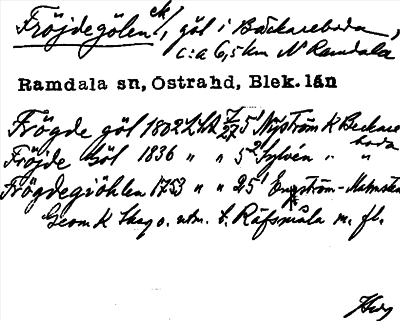 Fröjdegölen ek/, göl i Bäckareboda,
c:a 6,5 km N Ramdala
Ramdala sn, Östrahd, Blek. län
Frögde göl 1802 LSA 7/27 5¹ Nyström K Beckareboda
Fröjde Göl 1836 " " 5² Sylvén " "
Frögdegiöhlen 1753 " " 25¹ Engström-Malmsten
Geom K Skog o. utm. t. Räfsmåla m. fl.